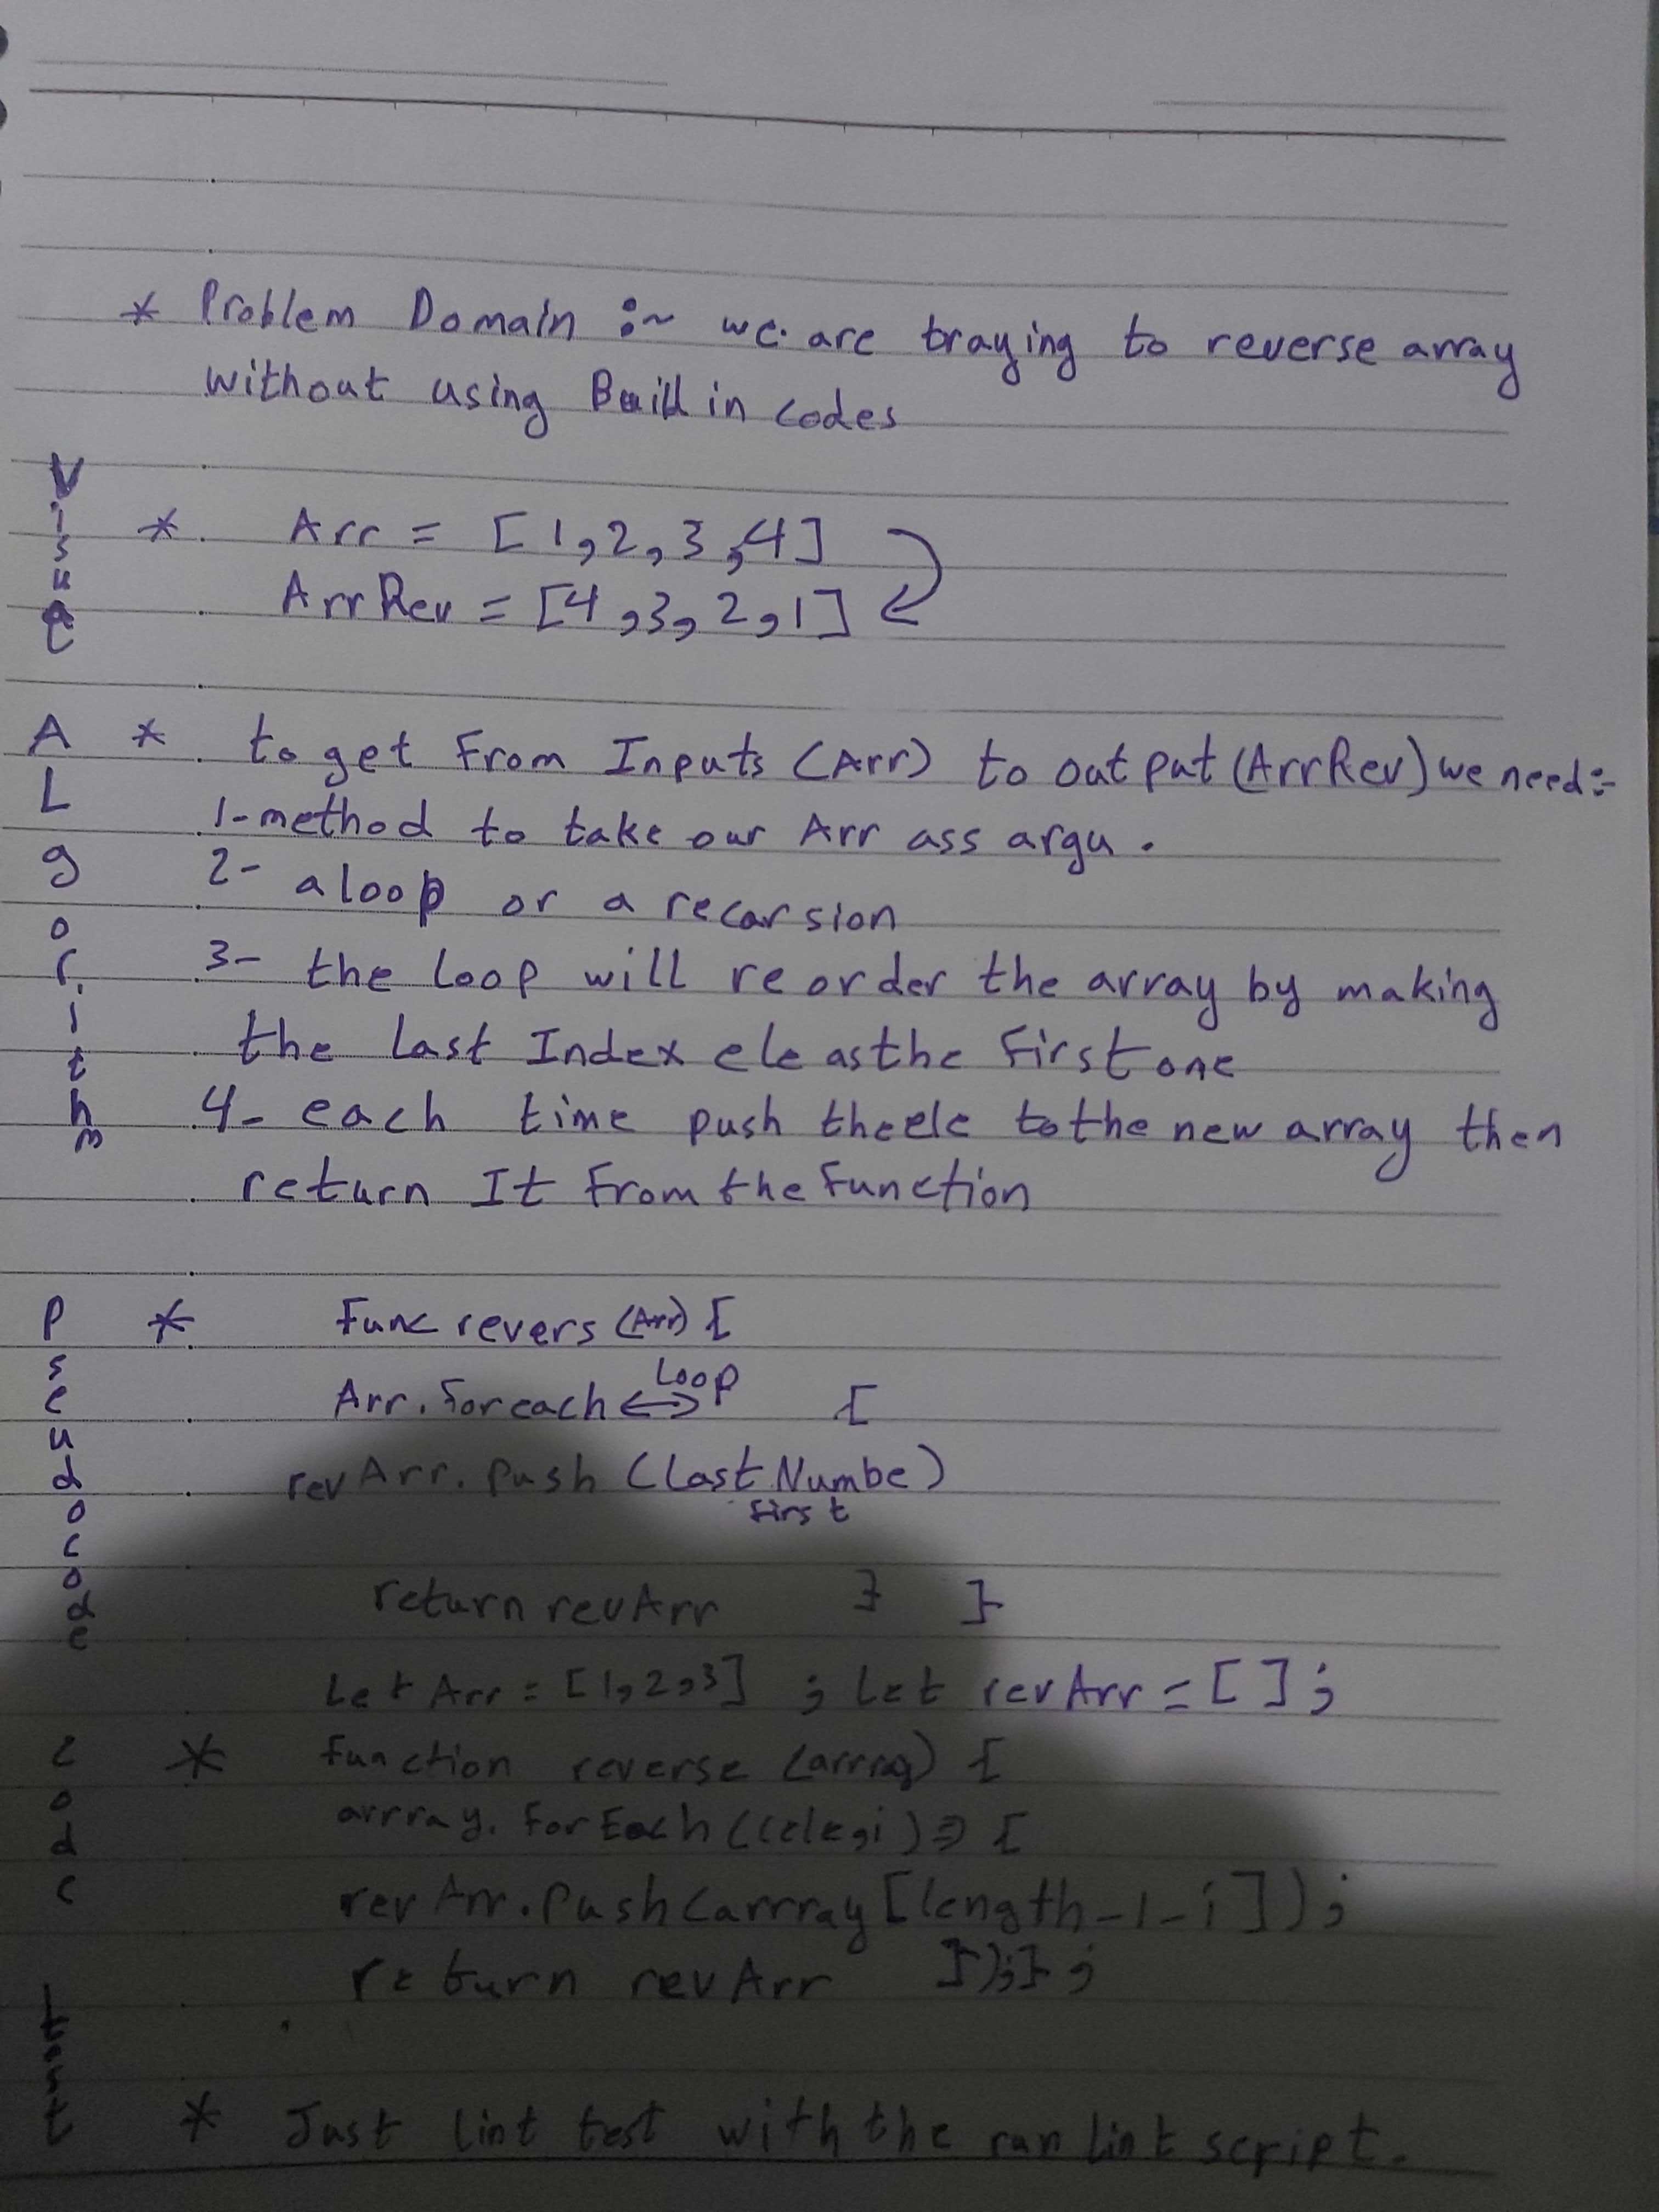 * Problem Domain :~ we are traying to reverse array
without using Build in codes
Visual
* Arr = [1,2,3,4]
ArrRev = [4,3,2,1]
ALgorithm
* to get From Inputs (Arr) to output (ArrRev) we need:-
1- method to take our Arr ass argu.
2- a loop or a recarsion
3- the loop will reorder the array by making
the Last Index ele as the First one
4- each time push the ele to the new array then
return It From the Function
Pseudocode
* Func revers (Arr) {
Arr. foreach <-> Loop {
revArr. Push (Last Numbe)
first
return revArr } }
Let Arr = [1,2,3] ; Let revArr = [ ];
code
* function reverse (arrray) {
arrray. ForEach ((ele,i) => {
revArr.Push(arrray[length-1-i]);
return revArr });};
* Just lint test with the run lint script.